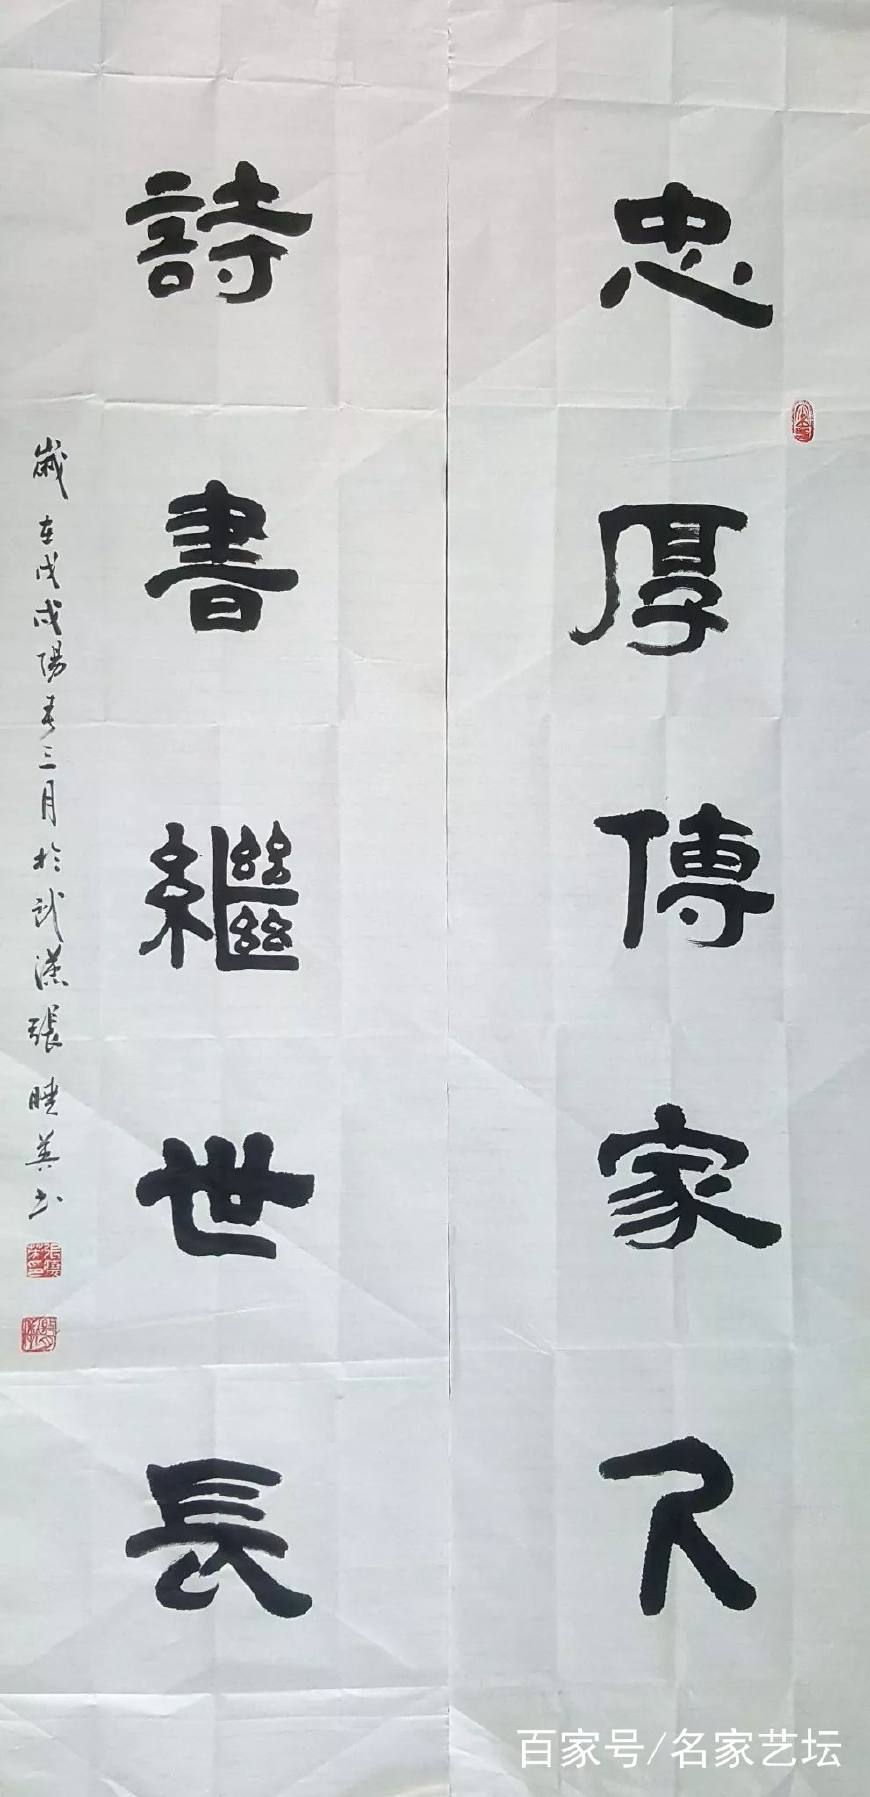 忠厚傳家久
詩書繼世長
歲在戊戌陽春三月於武漢張曉英书
百家号/名家艺坛